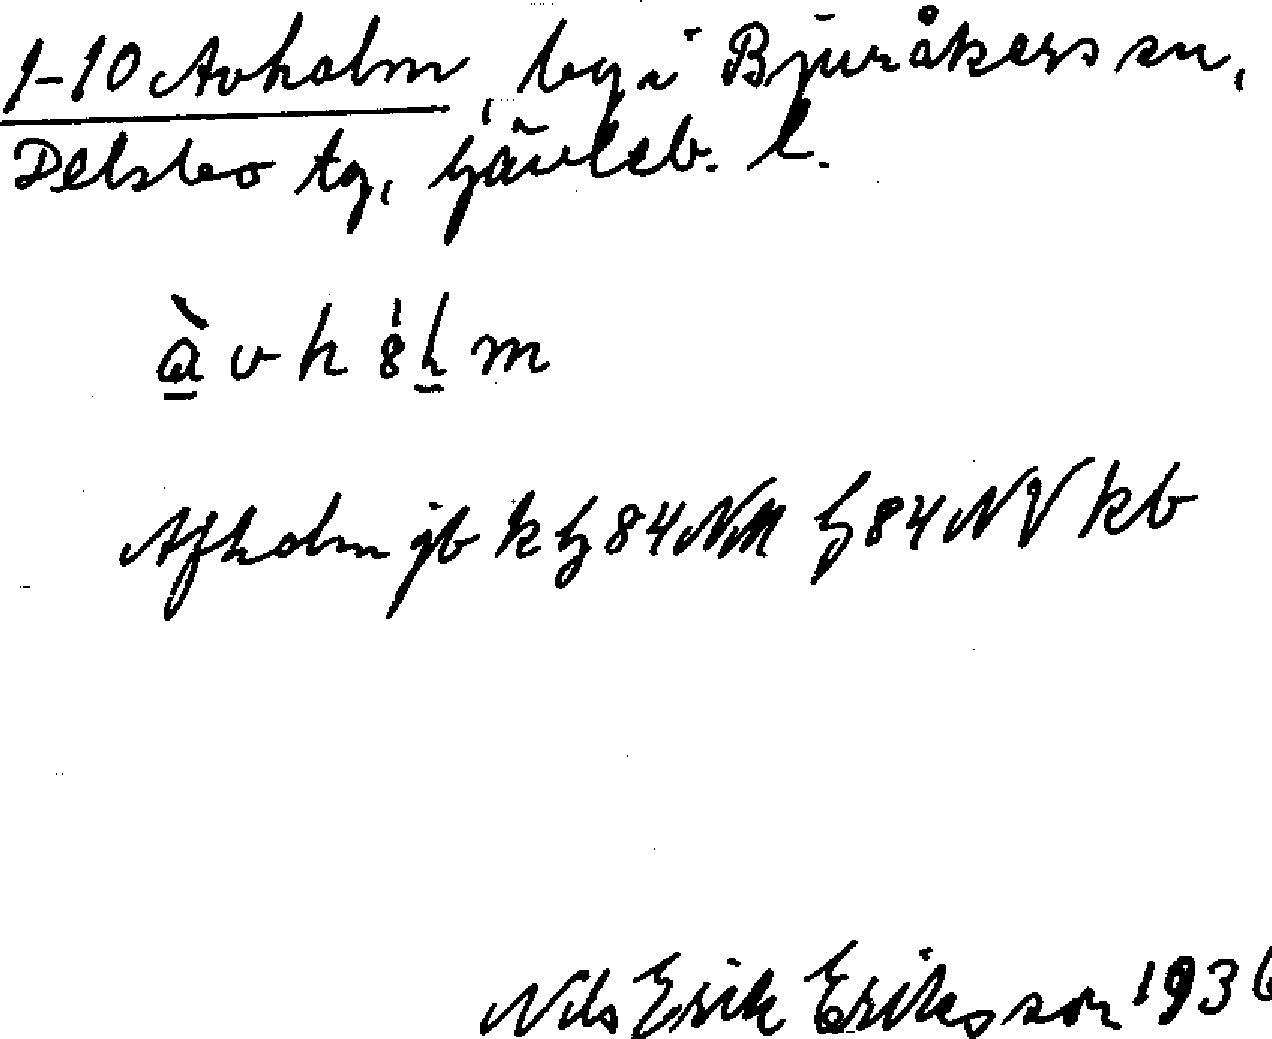 1-10 Avholm, by i Bjuråkers sn,
Delsbo tg, Gävleb. l.
àvh8lm
Afholm jb k G 84 NM G 84 NV kb
Nils Erik Eriksson 1936